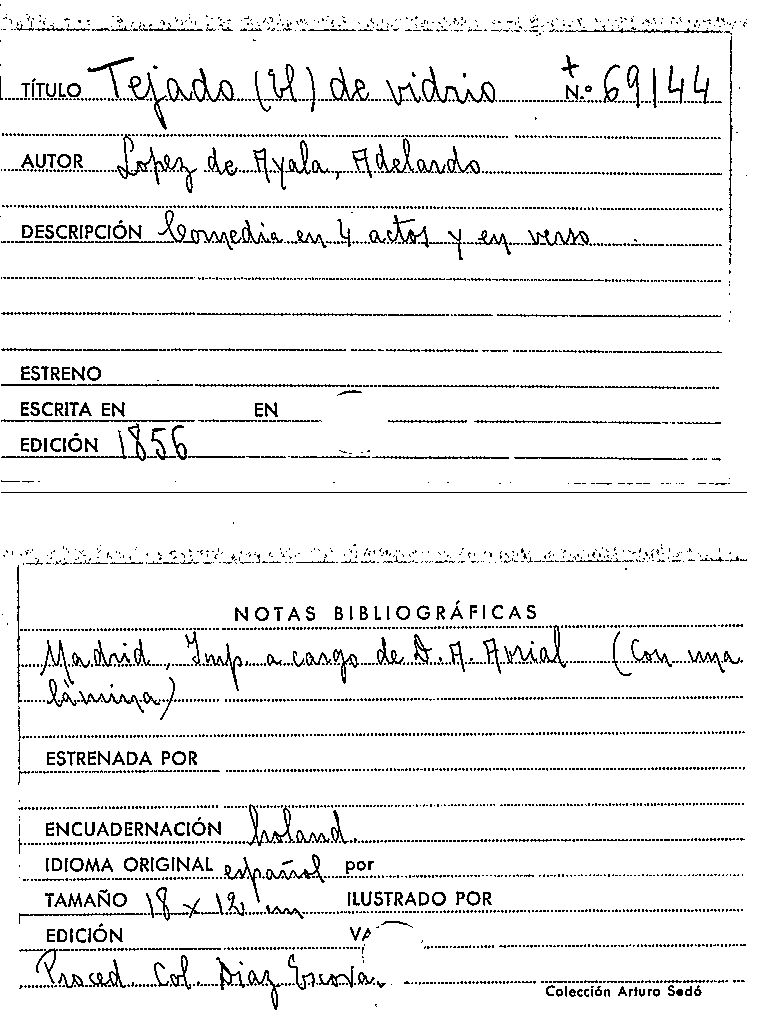 TÍTULO Tejado (El) de vidrio + N.º 69144
AUTOR Lopez de Ayala, Adelardo
DESCRIPCIÓN Comedia en 4 actos y en verso.
ESTRENO
ESCRITA EN EN
EDICIÓN 1856
NOTAS BIBLIOGRÁFICAS
Madrid, Imp. a cargo de D. A. Avrial (Con una
lámina)
ESTRENADA POR
ENCUADERNACIÓN holand.
IDIOMA ORIGINAL español por
TAMAÑO 18 x 12 cm ILUSTRADO POR
EDICIÓN VA
Proced. Col. Diaz Escova.
Colección Arturo Sedó